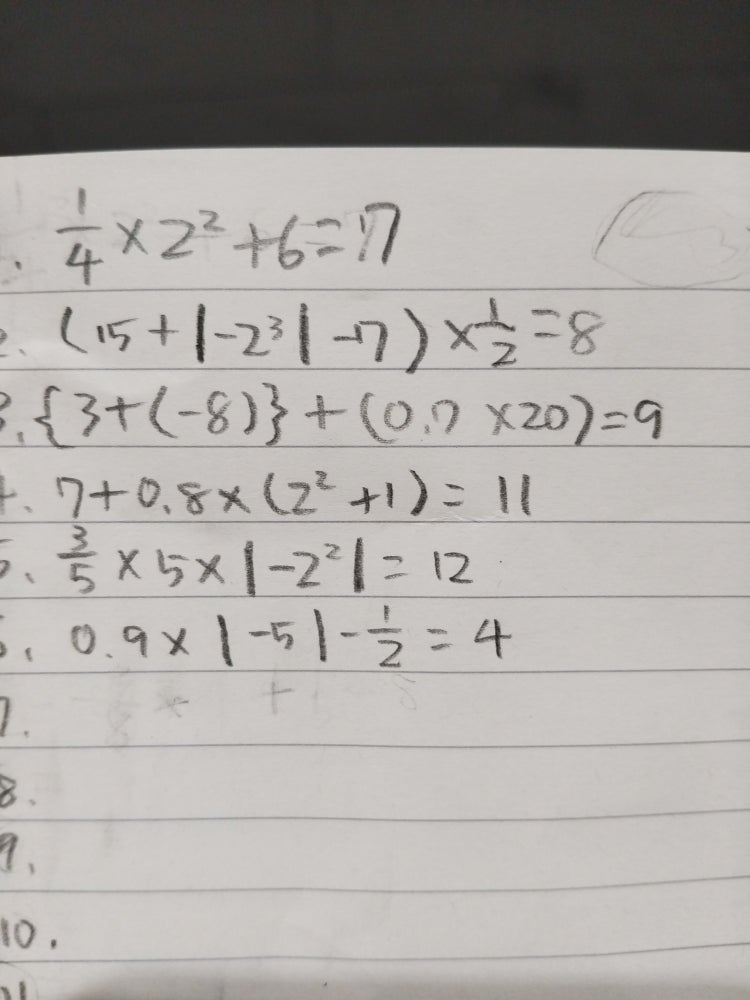 . 1/4 × 2² + 6 = 7
2. (15 + |-2³| - 17) × 1/2 = 8
3. {3 + (-8)} + (0.7 × 20) = 9
4. 7 + 0.8 × (2² + 1) = 11
5. 3/5 × 5 × |-2²| = 12
6. 0.9 × |-5| - 1/2 = 4
7.
8.
9.
10.